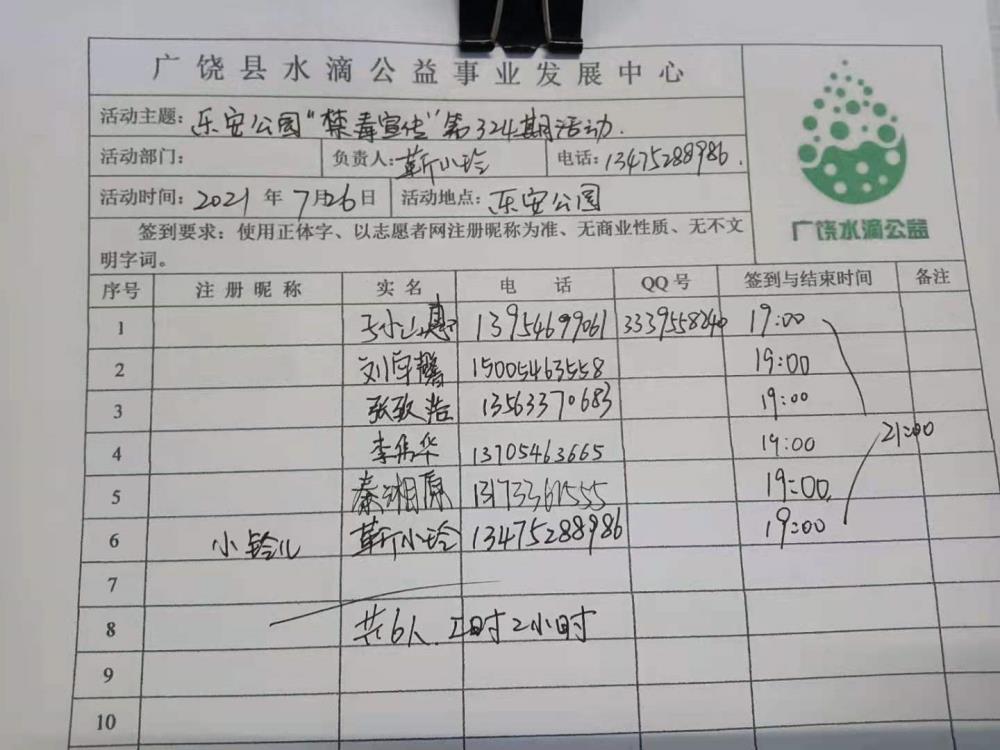 广饶县水滴公益事业发展中心
活动主题：乐安公园"禁毒宣传"第324期活动.
活动部门： 负责人：靳小玲 电话：13475288986.
活动时间：2021年7月26日 活动地点：乐安公园
签到要求：使用正体字、以志愿者网注册昵称为准、无商业性质、无不文
明字词。
广饶水滴公益
序号 注册昵称 实名 电话 QQ号 签到与结束时间 备注
1 13954699061 3339558240 19:00
2 刘宇馨 15005463558 19:00
3 张致浩 13563370683 19:00
4 李伟华 13705463665 19:00
21:00
5 秦湘原 13173361555 19:00
6 小铃儿 靳小玲 13475288986 19:00
7
8 共6人 工时2小时
9
10